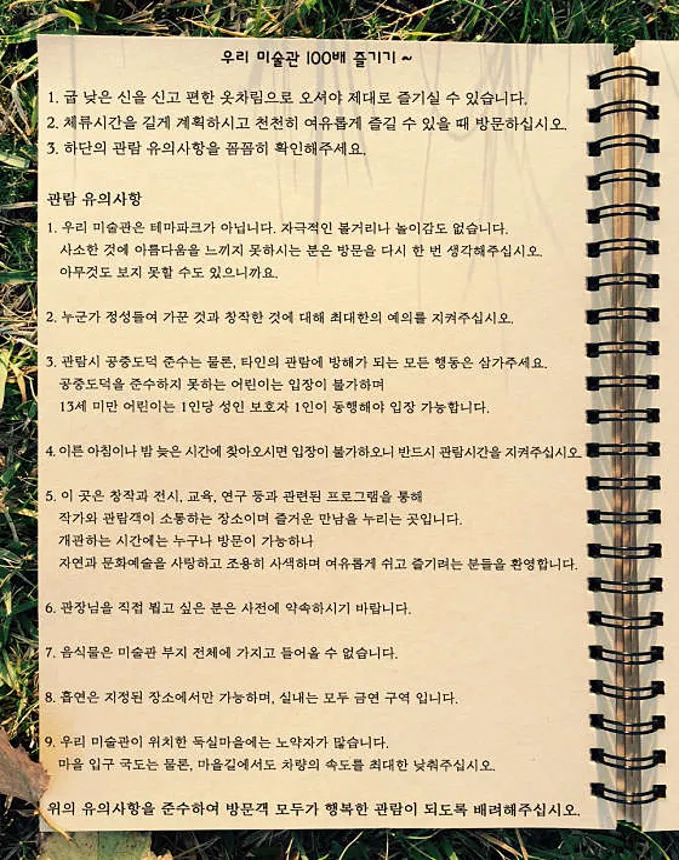 우리 미술관 100배 즐기기 ~
1. 굽 낮은 신을 신고 편한 옷차림으로 오셔야 제대로 즐기실 수 있습니다.
2. 체류시간을 길게 계획하시고 천천히 여유롭게 즐길 수 있을 때 방문하십시오.
3. 하단의 관람 유의사항을 꼼꼼히 확인해주세요.
관람 유의사항
1. 우리 미술관은 테마파크가 아닙니다. 자극적인 볼거리나 놀이감도 없습니다.
사소한 것에 아름다움을 느끼지 못하시는 분은 방문을 다시 한 번 생각해주십시오.
아무것도 보지 못할 수도 있으니까요.
2. 누군가 정성들여 가꾼 것과 창작한 것에 대해 최대한의 예의를 지켜주십시오.
3. 관람시 공중도덕 준수는 물론, 타인의 관람에 방해가 되는 모든 행동은 삼가주세요.
공중도덕을 준수하지 못하는 어린이는 입장이 불가하며
13세 미만 어린이는 1인당 성인 보호자 1인이 동행해야 입장 가능합니다.
4. 이른 아침이나 밤 늦은 시간에 찾아오시면 입장이 불가하오니 반드시 관람시간을 지켜주십시오.
5. 이 곳은 창작과 전시, 교육, 연구 등과 관련된 프로그램을 통해
작가와 관람객이 소통하는 장소이며 즐거운 만남을 누리는 곳입니다.
개관하는 시간에는 누구나 방문이 가능하나
자연과 문화예술을 사랑하고 조용히 사색하며 여유롭게 쉬고 즐기려는 분들을 환영합니다.
6. 관장님을 직접 뵙고 싶은 분은 사전에 약속하시기 바랍니다.
7. 음식물은 미술관 부지 전체에 가지고 들어올 수 없습니다.
8. 흡연은 지정된 장소에서만 가능하며, 실내는 모두 금연 구역 입니다.
9. 우리 미술관이 위치한 독실마을에는 노약자가 많습니다.
마을 입구 국도는 물론, 마을길에서도 차량의 속도를 최대한 낮춰주십시오.
위의 유의사항을 준수하여 방문객 모두가 행복한 관람이 되도록 배려해주십시오.